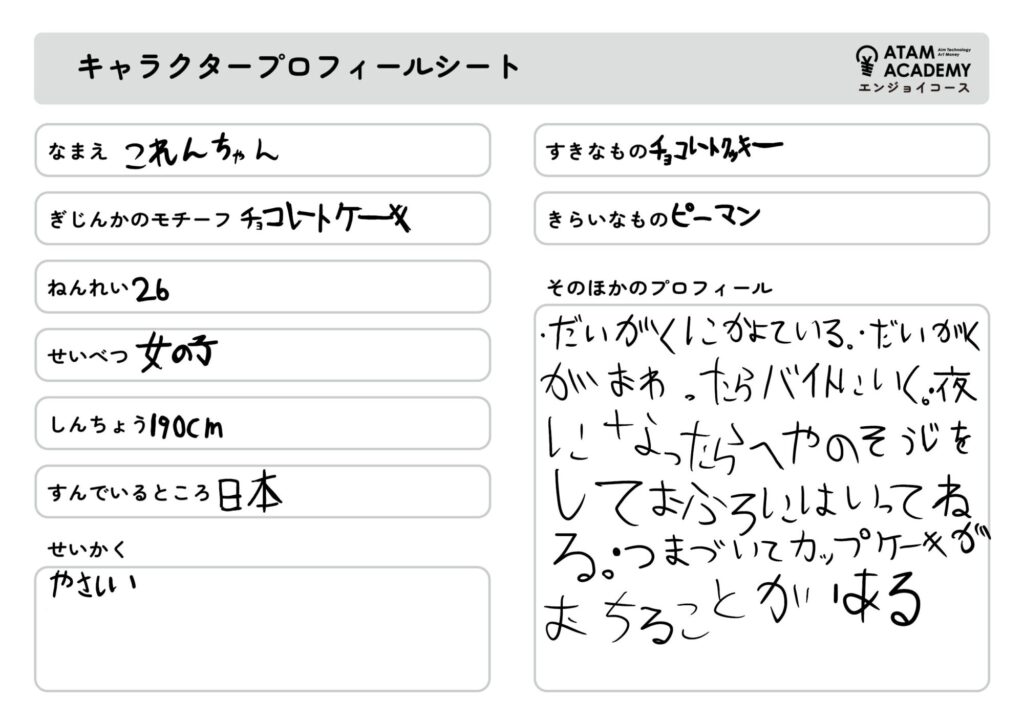 キャラクタープロフィールシート
ATAM
Aim Technology
Art Money
ACADEMY
エンジョイコース
なまえ これんちゃん
ぎじんかのモチーフ チョコレートケーキ
ねんれい 26
せいべつ 女の子
しんちょう 190cm
すんでいるところ 日本
せいかく
やさしい
すきなもの チョコレートクッキー
きらいなもの ピーマン
そのほかのプロフィール
・だいがくにかよている。・だいがく
がおわったらバイトにいく。・夜
になったらへやのそうじを
しておふろにはいってね
る。・つまづいてカップケーキが
おちることがある